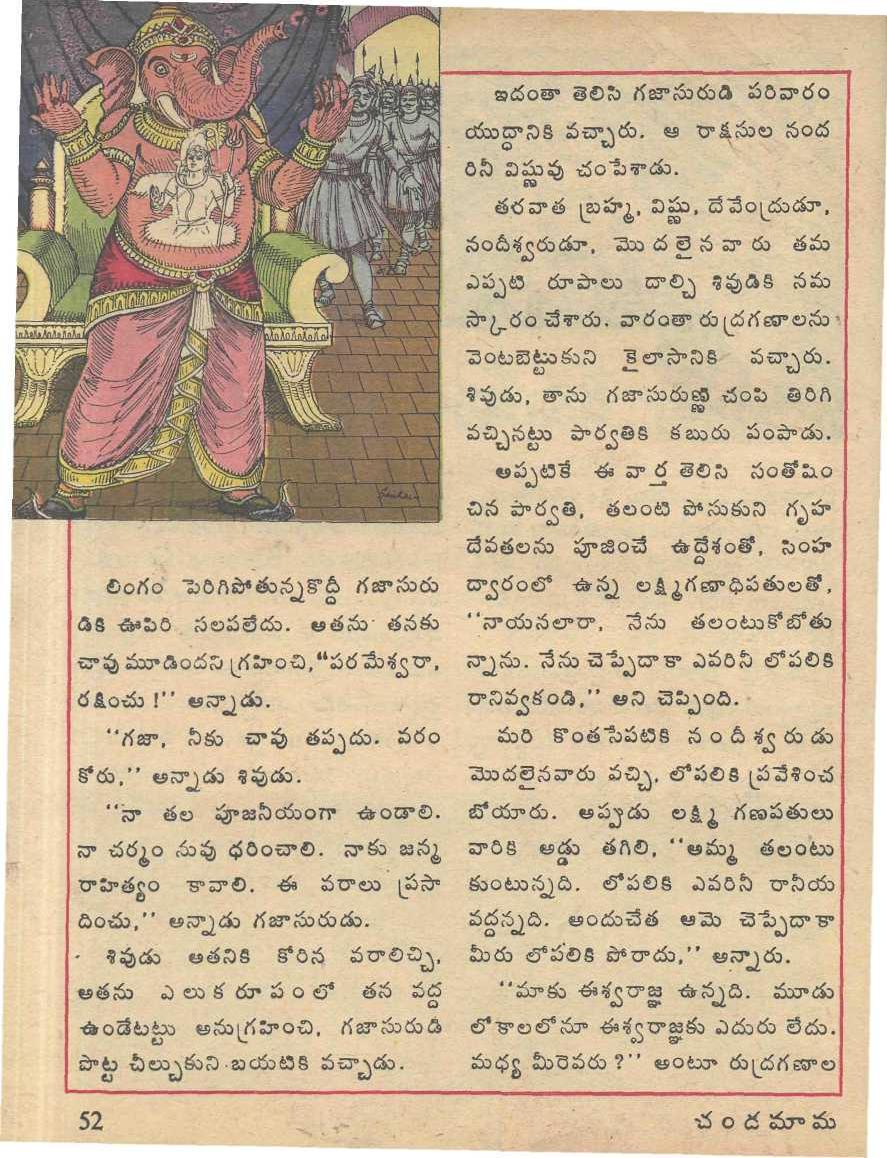 లింగం పెరిగిపోతున్నకొద్దీ గజాసురు
డికి ఊపిరి సలపలేదు. అతను తనకు
చావు మూడిందని గ్రహించి, "పరమేశ్వరా,
రక్షించు !'' అన్నాడు.
''గజా, నీకు చావు తప్పదు. వరం
కోరు,'' అన్నాడు శివుడు.
''నా తల పూజనీయంగా ఉండాలి.
నా చర్మం నువు ధరించాలి. నాకు జన్మ
రాహిత్యం కావాలి. ఈ వరాలు ప్రసా
దించు,'' అన్నాడు గజాసురుడు.
శివుడు అతనికి కోరిన వరాలిచ్చి,
అతను ఎలుక రూపంలో తన వద్ద
ఉండేటట్టు అనుగ్రహించి, గజాసురుడి
పొట్ట చీల్చుకుని బయటికి వచ్చాడు.
ఇదంతా తెలిసి గజాసురుడి పరివారం
యుద్ధానికి వచ్చారు. ఆ రాక్షసుల నంద
రినీ విష్ణువు చంపేశాడు.
తరవాత బ్రహ్మ, విష్ణు, దేవేంద్రుడూ,
నందీశ్వరుడూ, మొదలైనవారు తమ
ఎప్పటి రూపాలు దాల్చి శివుడికి నమ
స్కారం చేశారు. వారంతా రుద్రగణాలను
వెంటబెట్టుకుని కైలాసానికి వచ్చారు.
శివుడు, తాను గజాసురుణ్ణి చంపి తిరిగి
వచ్చినట్టు పార్వతికి కబురు పంపాడు.
అప్పటికే ఈ వార్త తెలిసి సంతోషిం
చిన పార్వతి, తలంటి పోసుకుని గృహ
దేవతలను పూజించే ఉద్దేశంతో, సింహ
ద్వారంలో ఉన్న లక్ష్మిగణాధిపతులతో,
''నాయనలారా, నేను తలంటుకోబోతు
న్నాను. నేను చెప్పేదాకా ఎవరినీ లోపలికి
రానివ్వకండి,'' అని చెప్పింది.
మరి కొంతసేపటికి నందీశ్వరుడు
మొదలైనవారు వచ్చి, లోపలికి ప్రవేశించ
బోయారు. అప్పుడు లక్ష్మి గణపతులు
వారికి అడ్డు తగిలి, ''అమ్మ తలంటు
కుంటున్నది. లోపలికి ఎవరినీ రానీయ
వద్దన్నది. అందుచేత ఆమె చెప్పేదాకా
మీరు లోపలికి పోరాదు,'' అన్నారు.
''మాకు ఈశ్వరాజ్ఞ ఉన్నది. మూడు
లోకాలలోనూ ఈశ్వరాజ్ఞకు ఎదురు లేదు.
మధ్య మీరెవరు ?'' అంటూ రుద్రగణాల
52
చందమామ